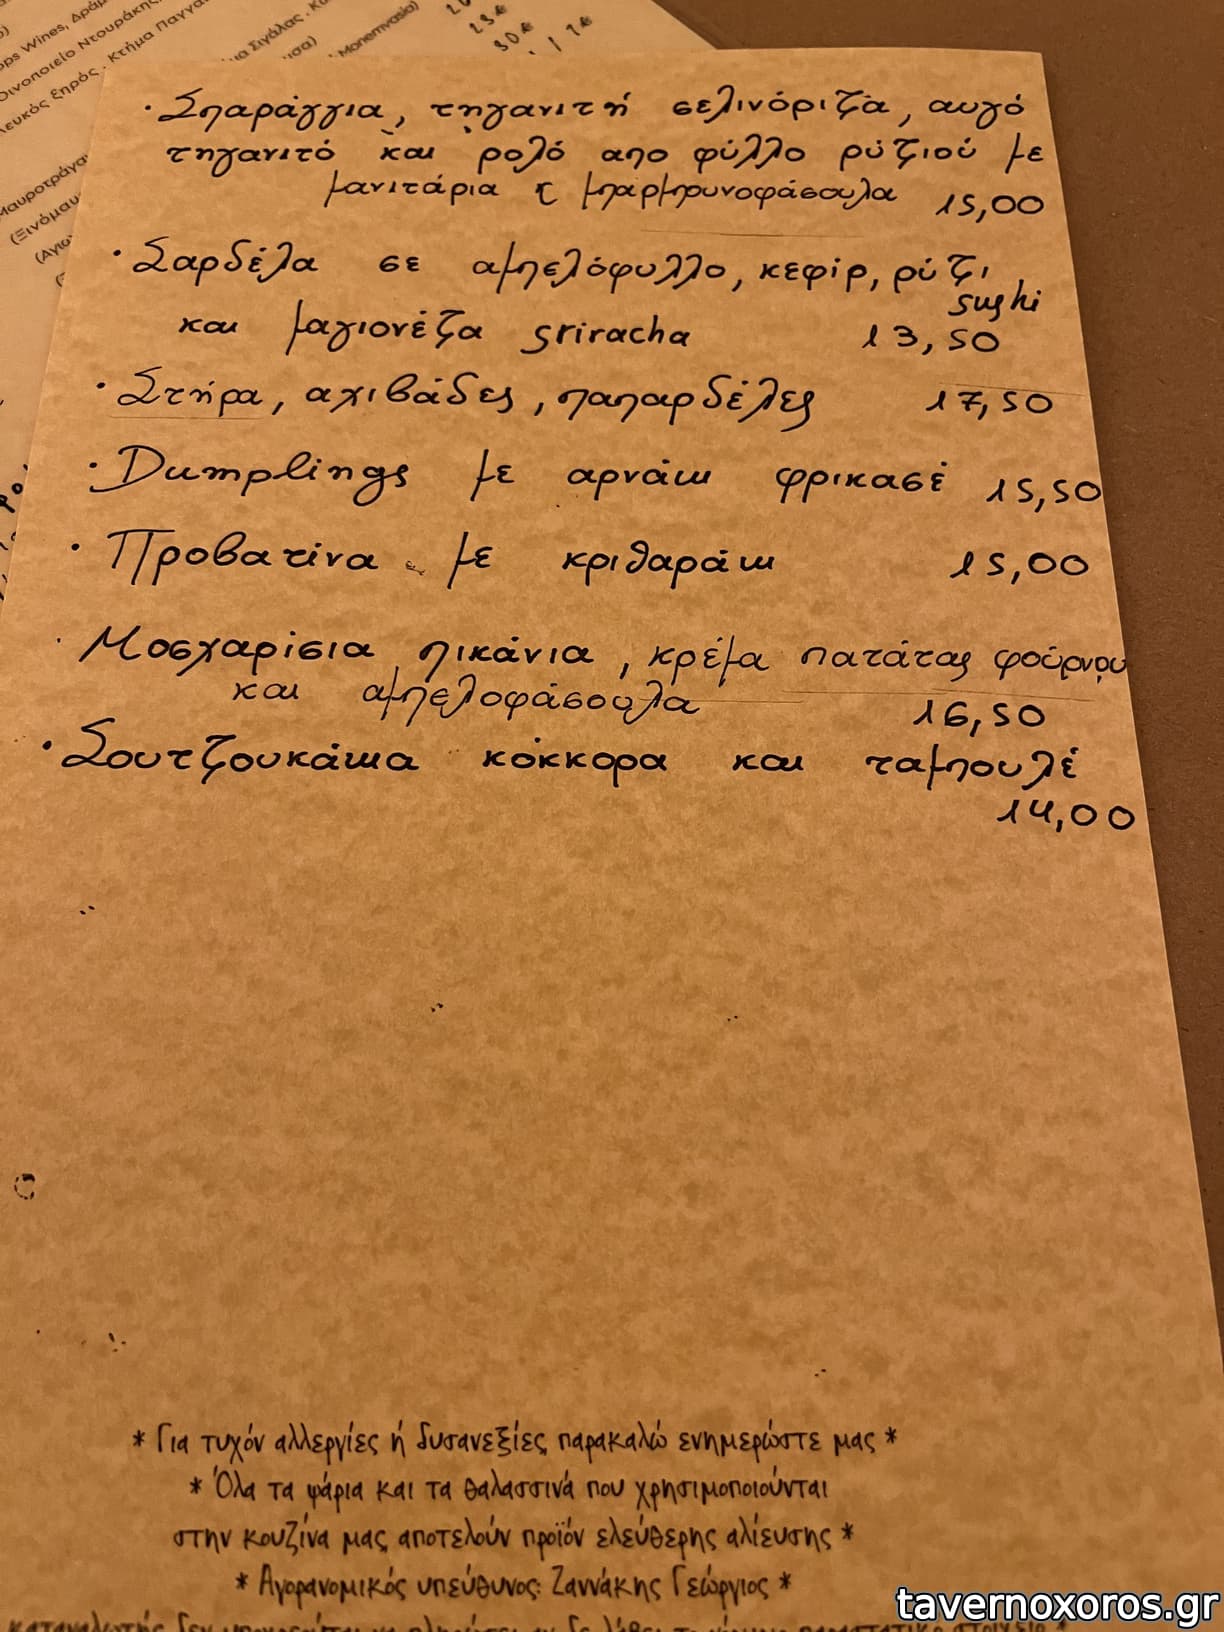 ops Wines, Δράμ
Οινοποιείο Ντουράκης
λευκός ξηρός, Κτήμα Παγγα
μα Σιγάλας, Κ
Monemvasia)
23€
30€
Μαυροτράγα
(Ξινόμαυ
• Σπαράγγια, τηγανιτή σελινόριζα, αυγό
τηγανιτό και ρολό απο φύλλο ρυζιού με
μανιτάρια & μπαρμπουνοφάσουλα 15,00
• Σαρδέλα σε αμπελόφυλλο, κεφίρ, ρύζι
sushi
και μαγιονέζα sriracha 13,50
• Στήρα, αχιβάδες, παπαρδέλες 17,50
• Dumplings με αρνάκι φρικασέ 15,50
• Προβατίνα με κριθαράκι 15,00
• Μοσχαρίσια πικάνια, κρέμα πατάτας φούρνου
και αμπελοφάσουλα 16,50
• Σουτζουκάκια κόκκορα και ταμπουλέ
14,00
* Για τυχόν αλλεργίες ή δυσανεξίες παρακαλώ ενημερώστε μας *
* Όλα τα ψάρια και τα θαλασσινά που χρησιμοποιούνται
στην κουζίνα μας αποτελούν προϊόν ελεύθερης αλίευσης *
* Αγορανομικός υπεύθυνος: Ζαννάκης Γεώργιος *
tavernoxoros.gr